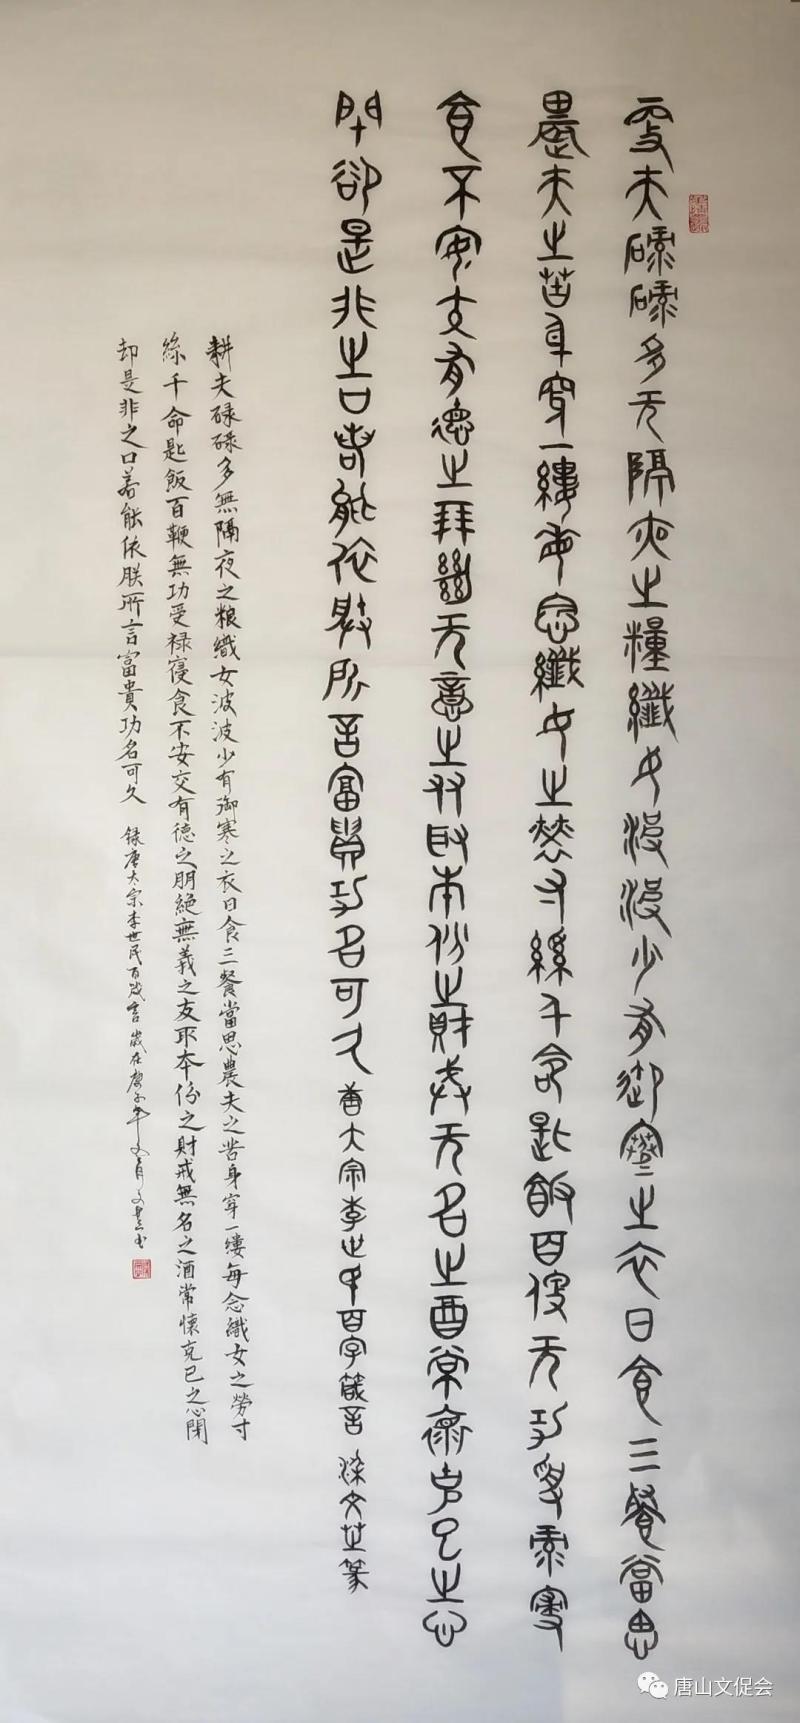 耕夫碌碌多无隔夜之糧織女波波少有御寒之衣日食三餐當思
農夫之苦身穿一縷每念織女之勞寸絲千命匙飯百鞭无功受祿寢
食不安交有德之朋絕无義之友取本份之財戒无名之酒常懷克己之心
閉卻是非之口若能依朕所言富貴功名可久 唐太宗李世民百字箴言 梁文芝篆
耕夫碌碌多無隔夜之粮織女波波少有御寒之衣日食三餐當思農夫之苦身穿一缕每念織女之勞寸
絲千命匙飯百鞭無功受禄寝食不安交有德之朋絕無義之友取本份之財戒無名之酒常懷克己之心閉
却是非之口若能依朕所言富貴功名可久 録唐太宗李世民百箴言 歲在庚子年
唐山文促会